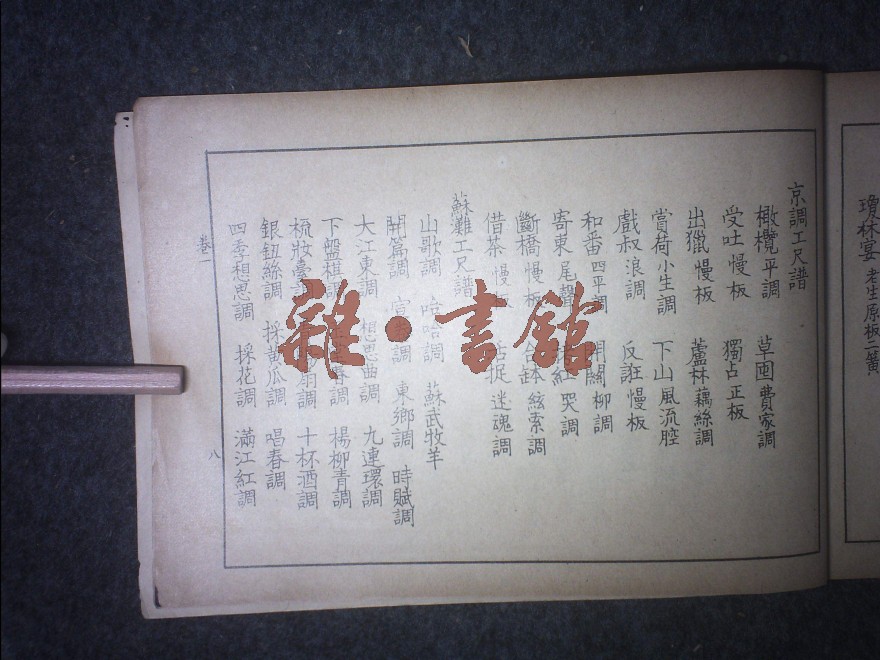 瓊林宴 老生原板二簧
京調工尺譜
橄欖平調 草囤費家調
受吐慢板 獨占正板
出獵慢板 蘆林藕絲調
賞荷小生調 下山風流腔
戲叔浪調 反誑慢板
和番四平調 開關柳調
寄柬尾聲 紅哭調
斷橋慢板 合缽絃索調
借茶慢板 活捉迷魂調
蘇灘工尺譜
山歌調 哈哈調 蘇武牧羊
開篇調 宣卷調 東鄉調 時賦調
大江東調 想思曲調 九連環調
下盤棋調 春調 楊柳青調
梳妝臺調 扇調 十杯酒調
銀鈕絲調 採黃瓜調 唱春調
四季想思調 採花調 滿江紅調
卷一 八
雜·書館